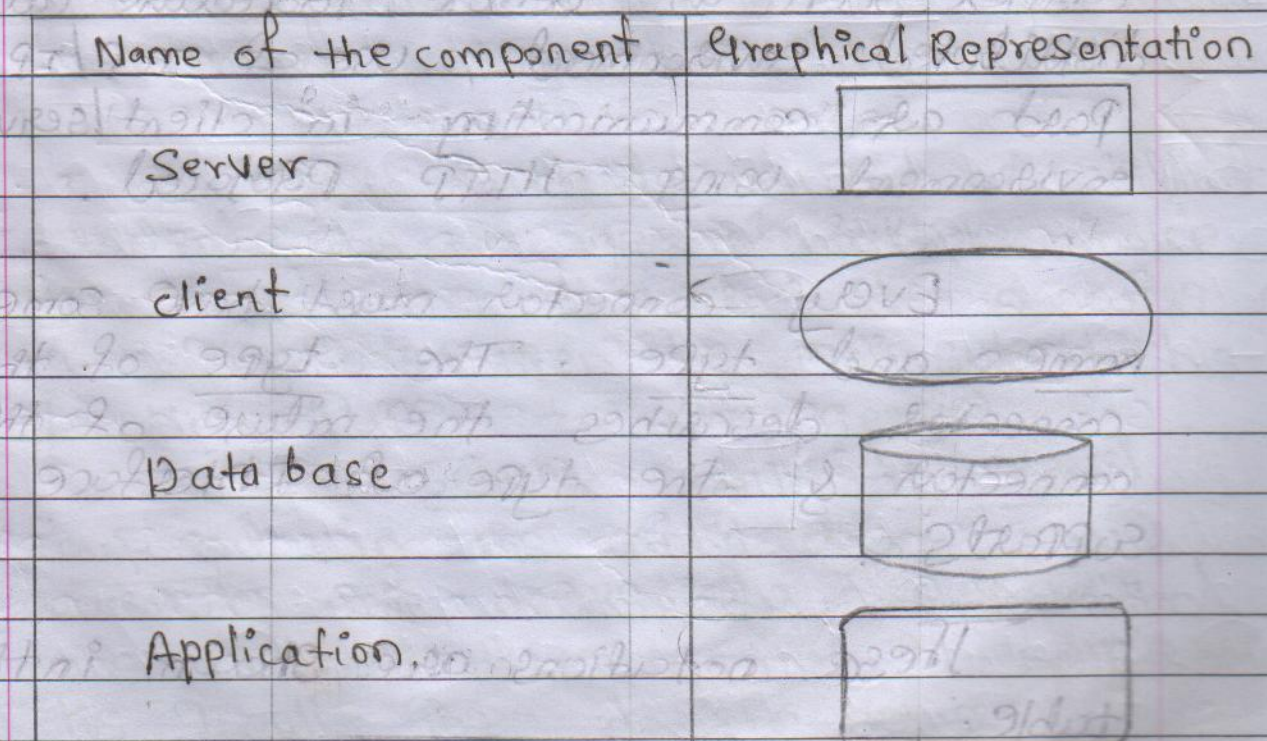 Name of the component Graphical Representation
Server
client
Data base
Application.